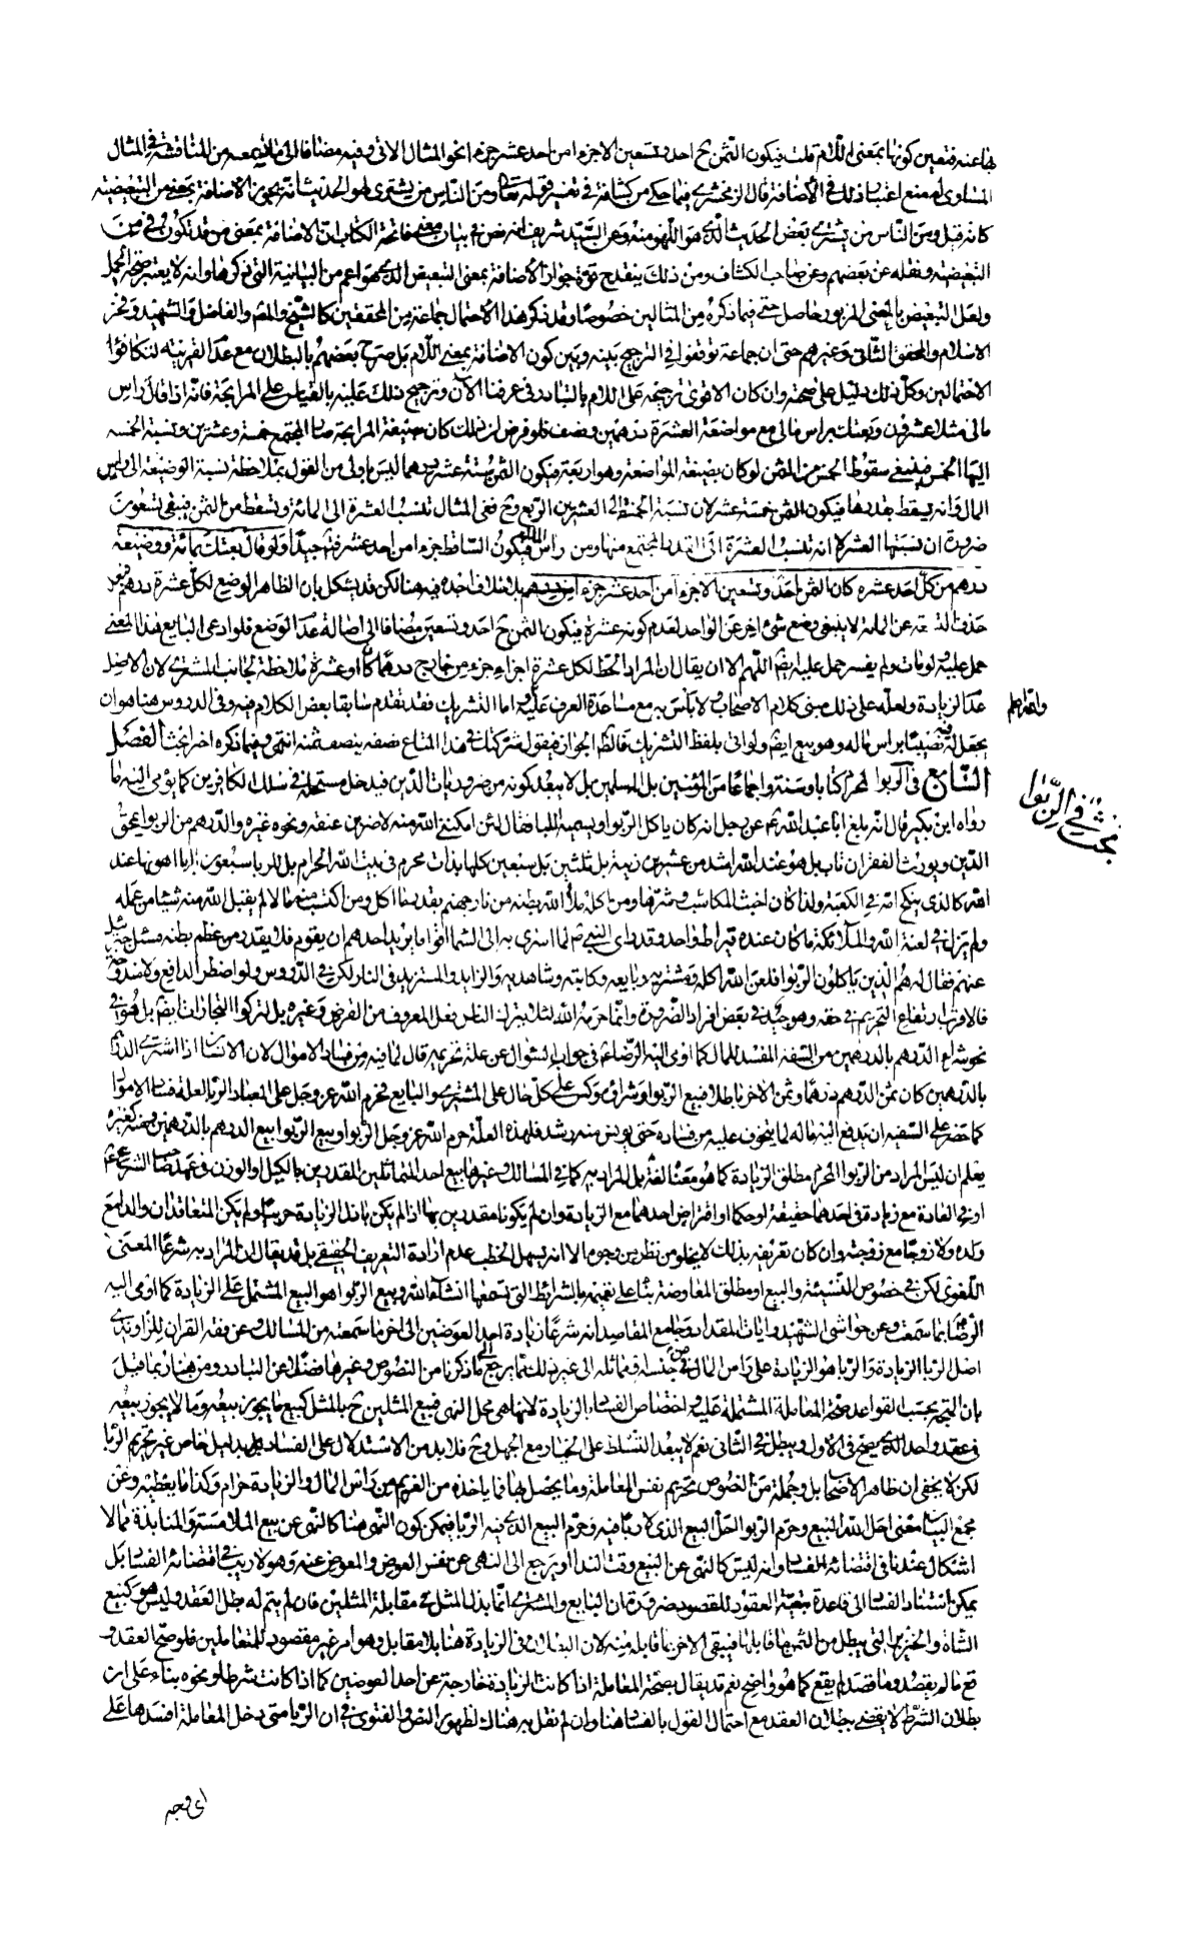 بها عنه فتعين كونها بمعنى اللام قلت فيكون الثمن ح احد وتسعين الا جزء من احد عشر جزء نحو المثال الاتى وفيه مضافا الى من المناقشة فى المثال
المساوى لمنع اعتبار ذلك فى الاضافة قال الزمخشرى فيما حكى من كشافه فى تفسير قوله تعالى ومن الناس من يشترى لهو الحديث انه يجوز الاضافة بمعنى من التبعيضية
كانه قيل ومن الناس من يشترى بعض الحديث الذى هو اللهو منه وعن السيد شريف انه نص فى بيان معنى فاتحة الكتاب ان الاضافة بمعنى من قد تكون فى من
التبعيضية ونقله عن بعضهم وعن صاحب الكشاف ومن ذلك ينقدح قوة جواز الاضافة بمعنى التبعيض الذى هو اعم من البيانية التى ذكرها وانه لا يعتبر صحة الحمل
ولعل التبعيض بالمعنى المزبور حاصل حتى فيما ذكره من المثالين خصوصا وقد ذكر هذا الاحتمال جماعة من المحققين كالشيخ والفاضل والشهيد وفخر
الاسلام والمحقق الثانى وغيرهم حتى ان جماعة توقفوا فى الترجيح بينه وبين كون الاضافة بمعنى اللام بل صرح بعضهم بالبطلان مع عدم القرينة لتكافؤ
الاحتمالين وكل ذلك دليل على صحته وان كان الاقوى ترجيحه على اللام بالتبادر فى عرفنا الان وترجيح ذلك عليه بالقياس على المرابحة فانه اذا قال راس
مالى مثلا عشرون وبعتك براس مالى مع مواضعة العشرة درهمين ونصف فلو فرض ان ذلك كان صيغة المرابحة صار المجتمع خمسة وعشرين ونسبة الخمسة
اليها الخمس فينبغى سقوط الخمس من الثمن لو كان بصيغة المواضعة وهو اربعة فيكون الثمن ستة عشر درهما ليس باولى من القول بملاحظة نسبة الوضيعة الى راس
المال فانه يسقط بقدرها فيكون الثمن خمسة عشر لان نسبة الخمسة الى العشرين الربع وح ففى المثال تنسب العشرة الى المائة وتسقط من الثمن فيبقى تسعون
ضرورة ان نسبتها العشر لا انه تنسب العشرة الى القدر المجتمع منها ومن راس المال فيكون الساقط جزء من احد عشر فتم جيدا ولو قال بعتك بمائة ووضيعة
درهم من كل احد عشر كان الثمن احد وتسعين الا جزء من احد عشر جزء من درهم بلا خلاف اجده فيه هنا لكن قد يشكل بان الظاهر الوضع لكل عشرة درهم
عن المائة لا ينبغى وضع شىء اخر عن الواحد لعدم كونه عشرة فيكون الثمن ح احد وتسعين مضافا الى اصالة عدم الوضع فلو ادعى البايع هذا المعنى
حمل عليه ولو مات ولم يفسر حمل عليه ايضا اللهم الا ان يقال ان المراد الحط لكل عشرة اجزاء جزء من خارج درهما كان او عشرة ملاحظة لجانب المشترى لان الاصل
عدم الزيادة ولعله على ذلك مبنى كلام الاصحاب ولا باس به مع مساعدة العرف عليه واما التشريك فقد تقدم سابقا بعض الكلام فيه وفى الدروس هنا هو ان
يجعل له فيه نصيبا براس ماله وهو بيع ايضا ولو اتى بلفظ التشريك فالظاهر الجواز فيقول شركتك فى هذا المتاع نصفه بنصف ثمنه انتهى وفيما ذكره اخرا بحث الفصل
السابع فى الربوا المحرم كتابا وسنة واجماعا من المؤمنين بل المسلمين بل لا يبعد كونه من ضروريات الدين فيدخل مستحله فى سلك الكافرين كما يؤمى اليه ما
رواه ابن بكير قال انه بلغ ابا عبد الله ع عن رجل انه كان ياكل الربوا ويسميه اللبا فقال لئن امكننى الله منه لاضربن عنقه ونحوه غيره والدرهم من الربوا يمحق
الدين ويورث الفقر ان تاب بل هو عند الله اشد من عشرين زنية بل ثلثين بل سبعين كلها بذات محرم فى بيت الله الحرام بل للربا سبعون بابا اهونها عند
الله كالذى ينكح امه فى الكعبة ولذا كان اخبث المكاسب وشرها ومن اكله ملأ الله بطنه من نار جهنم بقدر ما اكل ومن اكتسب منه مالا لم يقبل الله منه شيئا من عمله
ولم يزل فى لعنة الله والملائكة ما كان عنده قيراط واحد وقد راى النبى ص لما اسرى به الى السماء اقواما يريد احدهم ان يقوم فلا يقدر من عظم بطنه فسئل جبرئيل
عنهم فقال له هم الذين ياكلون الربوا فلعن الله اكله ومشتريه وبايعه وكاتبه وشاهديه والزايد والمستزيد فى النار لكن فى الدروس ولو اضطر الدافع ولا مندوحة
فالاقرب ارتفاع التحريم فى حقه وهو جيد فى بعض افراد الضرورة وانما حرمه الله لئلا يترك الناس فعل المعروف من القرض وغيره بل تركوا التجارات ايضا بل هو فى
نحو شراء الدرهم بالدرهمين من السفه المفسد للمال كما اومى اليه الرضا ع فى جواب السؤال عن علة تحريمه قال لما فيه من فساد الاموال لان الانسان اذا اشترى الدرهم
بالدرهمين كان ثمن الدرهم درهما وثمن الاخر باطلا فبيع الربوا وشراؤه وكس على كل حال على المشترى والبايع فحرم الله عز وجل على العباد الربا لعلة فساد الاموال
كما حضر على السفيه ان يدفع اليه ماله لما يتخوف عليه من فساده حتى يونس منه رشد فلهذه العلة حرم الله عز وجل الربوا وبيع الربوا بيع الدرهم بالدرهمين ومنه كغيره
يعلم ان ليس المراد من الربوا المحرم مطلق الزيادة كما هو معناه لغة بل المراد به كما فى المسالك وغيرها بيع احد المتماثلين المقدرين بالكيل او الوزن فى عهد صاحب الشرع ع
او فى العادة مع زيادة فى احدهما حقيقة او حكما او اقتراض احدهما مع الزيادة وان لم يكونا مقدرين بهما اذا لم يكن باذل الزيادة حربيا ولم يكن المتعاقدان والدا مع
ولده ولا زوجا مع زوجته وان كان تعريفه بذلك لا يخلو من نظر من وجوه الا انه يسهل الخطب عدم ارادة التعريف الحقيقى بل قد يقال ان المراد به شرعا المعنى
اللغوى لكن فى خصوص النسيئة والبيع او مطلق المعاوضة بناء على تعميمه بالشرائط التى تسمعها انشاء الله وبيع الربوا هو البيع المشتمل على الزيادة كما اومى اليه
الرضا بما سمعت وعن حواشى الشهيد وايات المقداد وجامع المقاصد انه شرعا زيادة احد العوضين الى اخر ما سمعته من المسالك وعن فقه القران للراوندى
اصل الربا الزيادة والربا هو الزيادة على راس المال فى جنسه او مماثله الى غير ذلك مما يرجع الى ما ذكرنا من النصوص وغيرها فضلا عن التبادر ومن هنا ربما قيل
بان المتجه بحسب القواعد صحة المعاملة المشتملة عليه واختصاص الفساد بالزيادة لانها هى محل النهى فبيع المثلين ح بالمثل كبيع ما يجوز بيعه وما لا يجوز بيعه
فى عقد واحد الذى يصح فى الاول ويبطل فى الثانى نعم لا يبعد التسلط على الخيار مع الجهل وح فلا بد من الاستدلال على الفساد بدليل خاص غير تحريم الربا
لكن لا يخفى ان ظاهر الاصحاب بل وجملة من النصوص تحريم نفس المعاملة وما يحصل بها فما ياخذه من الغريم من راس المال والزيادة حرام وكذا ما يعطيه وعن
مجمع البيان معنى احل الله البيع وحرم الربوا احل البيع الذى لا ربا فيه وحرم البيع الذى فيه الربا فيمكن كون النهى هنا كالنهى عن بيع الملامسة والمنابذة مما لا
اشكال عندنا فى اقتضائه الفساد وانه ليس كالنهى عن البيع وقت النداء او يرجع الى النهى عن نفس العوض والمعوض عنه وهو لا ريب فى اقتضائه الفساد بل
يمكن استناد الفساد الى قاعدة تبعية العقود للقصود ضرورة ان البايع والمشترى انما بذل المثل فى مقابلة المثلين فان لم يتم له بطل العقد وليس هو كبيع
الشاة والخنزير التى يبطل من الثمن ما قابلها فيبقى الاخر بما قابله منه لان البطلان فى الزيادة هنا بلا مقابل وهو امر غير مقصود للمتعاملين فلو صح العقد و
قع ما لم يقصد وما قصد لم يقع كما هو واضح نعم قد يقال بصحة المعاملة اذا كانت الزيادة خارجة عن احد العوضين كما اذا كانت شرطا ونحوه بناء على ان
بطلان الشرط لا يقضى ببطلان العقد مع احتمال القول بالفساد هنا وان لم نقل به هناك لظهور النص والفتوى فى ان الربا متى دخل المعاملة افسدها على
والله اعلم
مبحث فى الربوا
اى وجه